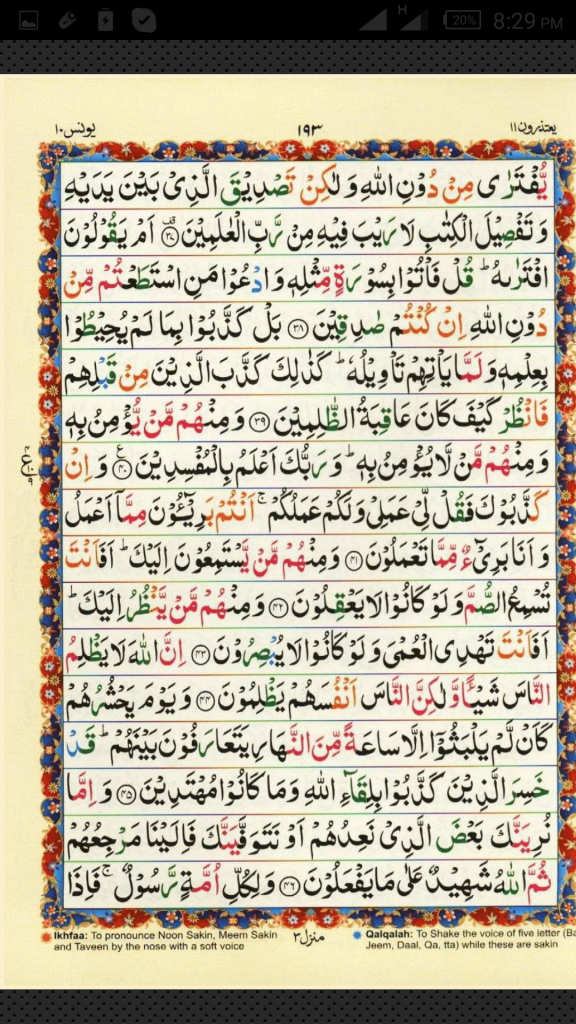 H 20% 8:29 PM
يونس١٠ ١٩٣ يعتذرون١١
يُّفْتَرٰى مِنْ دُوْنِ اللّٰهِ وَلٰكِنْ تَصْدِيْقَ الَّذِىْ بَيْنَ يَدَيْهِ
وَتَفْصِيْلَ الْكِتٰبِ لَا رَيْبَ فِيْهِ مِنْ رَّبِّ الْعٰلَمِيْنَ ﴿۳۷﴾ اَمْ يَقُوْلُوْنَ
افْتَرٰىهُ ؕ قُلْ فَاْتُوْا بِسُوْرَةٍ مِّثْلِهٖ وَادْعُوْا مَنِ اسْتَطَعْتُمْ مِّنْ
دُوْنِ اللّٰهِ اِنْ كُنْتُمْ صٰدِقِيْنَ ﴿۳۸﴾ بَلْ كَذَّبُوْا بِمَا لَمْ يُحِيْطُوْا
بِعِلْمِهٖ وَلَمَّا يَاْتِهِمْ تَاْوِيْلُهٗ ؕ كَذٰلِكَ كَذَّبَ الَّذِيْنَ مِنْ قَبْلِهِمْ
فَانْظُرْ كَيْفَ كَانَ عَاقِبَةُ الظّٰلِمِيْنَ ﴿۳۹﴾ وَمِنْهُمْ مَّنْ يُّؤْمِنُ بِهٖ
وَمِنْهُمْ مَّنْ لَّا يُؤْمِنُ بِهٖ ؕ وَرَبُّكَ اَعْلَمُ بِالْمُفْسِدِيْنَ ﴿۴۰﴾ وَاِنْ
كَذَّبُوْكَ فَقُلْ لِّىْ عَمَلِىْ وَلَكُمْ عَمَلُكُمْ ۚ اَنْتُمْ بَرِيْٓئُوْنَ مِمَّاۤ اَعْمَلُ
وَاَنَا بَرِىْٓءٌ مِّمَّا تَعْمَلُوْنَ ﴿۴۱﴾ وَمِنْهُمْ مَّنْ يَّسْتَمِعُوْنَ اِلَيْكَ ؕ اَفَاَنْتَ
تُسْمِعُ الصُّمَّ وَلَوْ كَانُوْا لَا يَعْقِلُوْنَ ﴿۴۲﴾ وَمِنْهُمْ مَّنْ يَّنْظُرُ اِلَيْكَ ؕ
اَفَاَنْتَ تَهْدِى الْعُمْىَ وَلَوْ كَانُوْا لَا يُبْصِرُوْنَ ﴿۴۳﴾ اِنَّ اللّٰهَ لَا يَظْلِمُ
النَّاسَ شَيْـًٔا وَّلٰكِنَّ النَّاسَ اَنْفُسَهُمْ يَظْلِمُوْنَ ﴿۴۴﴾ وَيَوْمَ يَحْشُرُهُمْ
كَاَنْ لَّمْ يَلْبَثُوْۤا اِلَّا سَاعَةً مِّنَ النَّهَارِ يَتَعَارَفُوْنَ بَيْنَهُمْ ؕ قَدْ
خَسِرَ الَّذِيْنَ كَذَّبُوْا بِلِقَآءِ اللّٰهِ وَمَا كَانُوْا مُهْتَدِيْنَ ﴿۴۵﴾ وَاِمَّا
نُرِيَنَّكَ بَعْضَ الَّذِىْ نَعِدُهُمْ اَوْ نَتَوَفَّيَنَّكَ فَاِلَيْنَا مَرْجِعُهُمْ
ثُمَّ اللّٰهُ شَهِيْدٌ عَلٰى مَا يَفْعَلُوْنَ ﴿۴۶﴾ وَلِكُلِّ اُمَّةٍ رَّسُوْلٌ ۚ فَاِذَا
Ikhfaa: To pronounce Noon Sakin, Meem Sakin
and Taveen by the nose with a soft voice
منزل٣
Qalqalah: To Shake the voice of five letter (Ba
Jeem, Daal, Qa, tta) while these are sakin